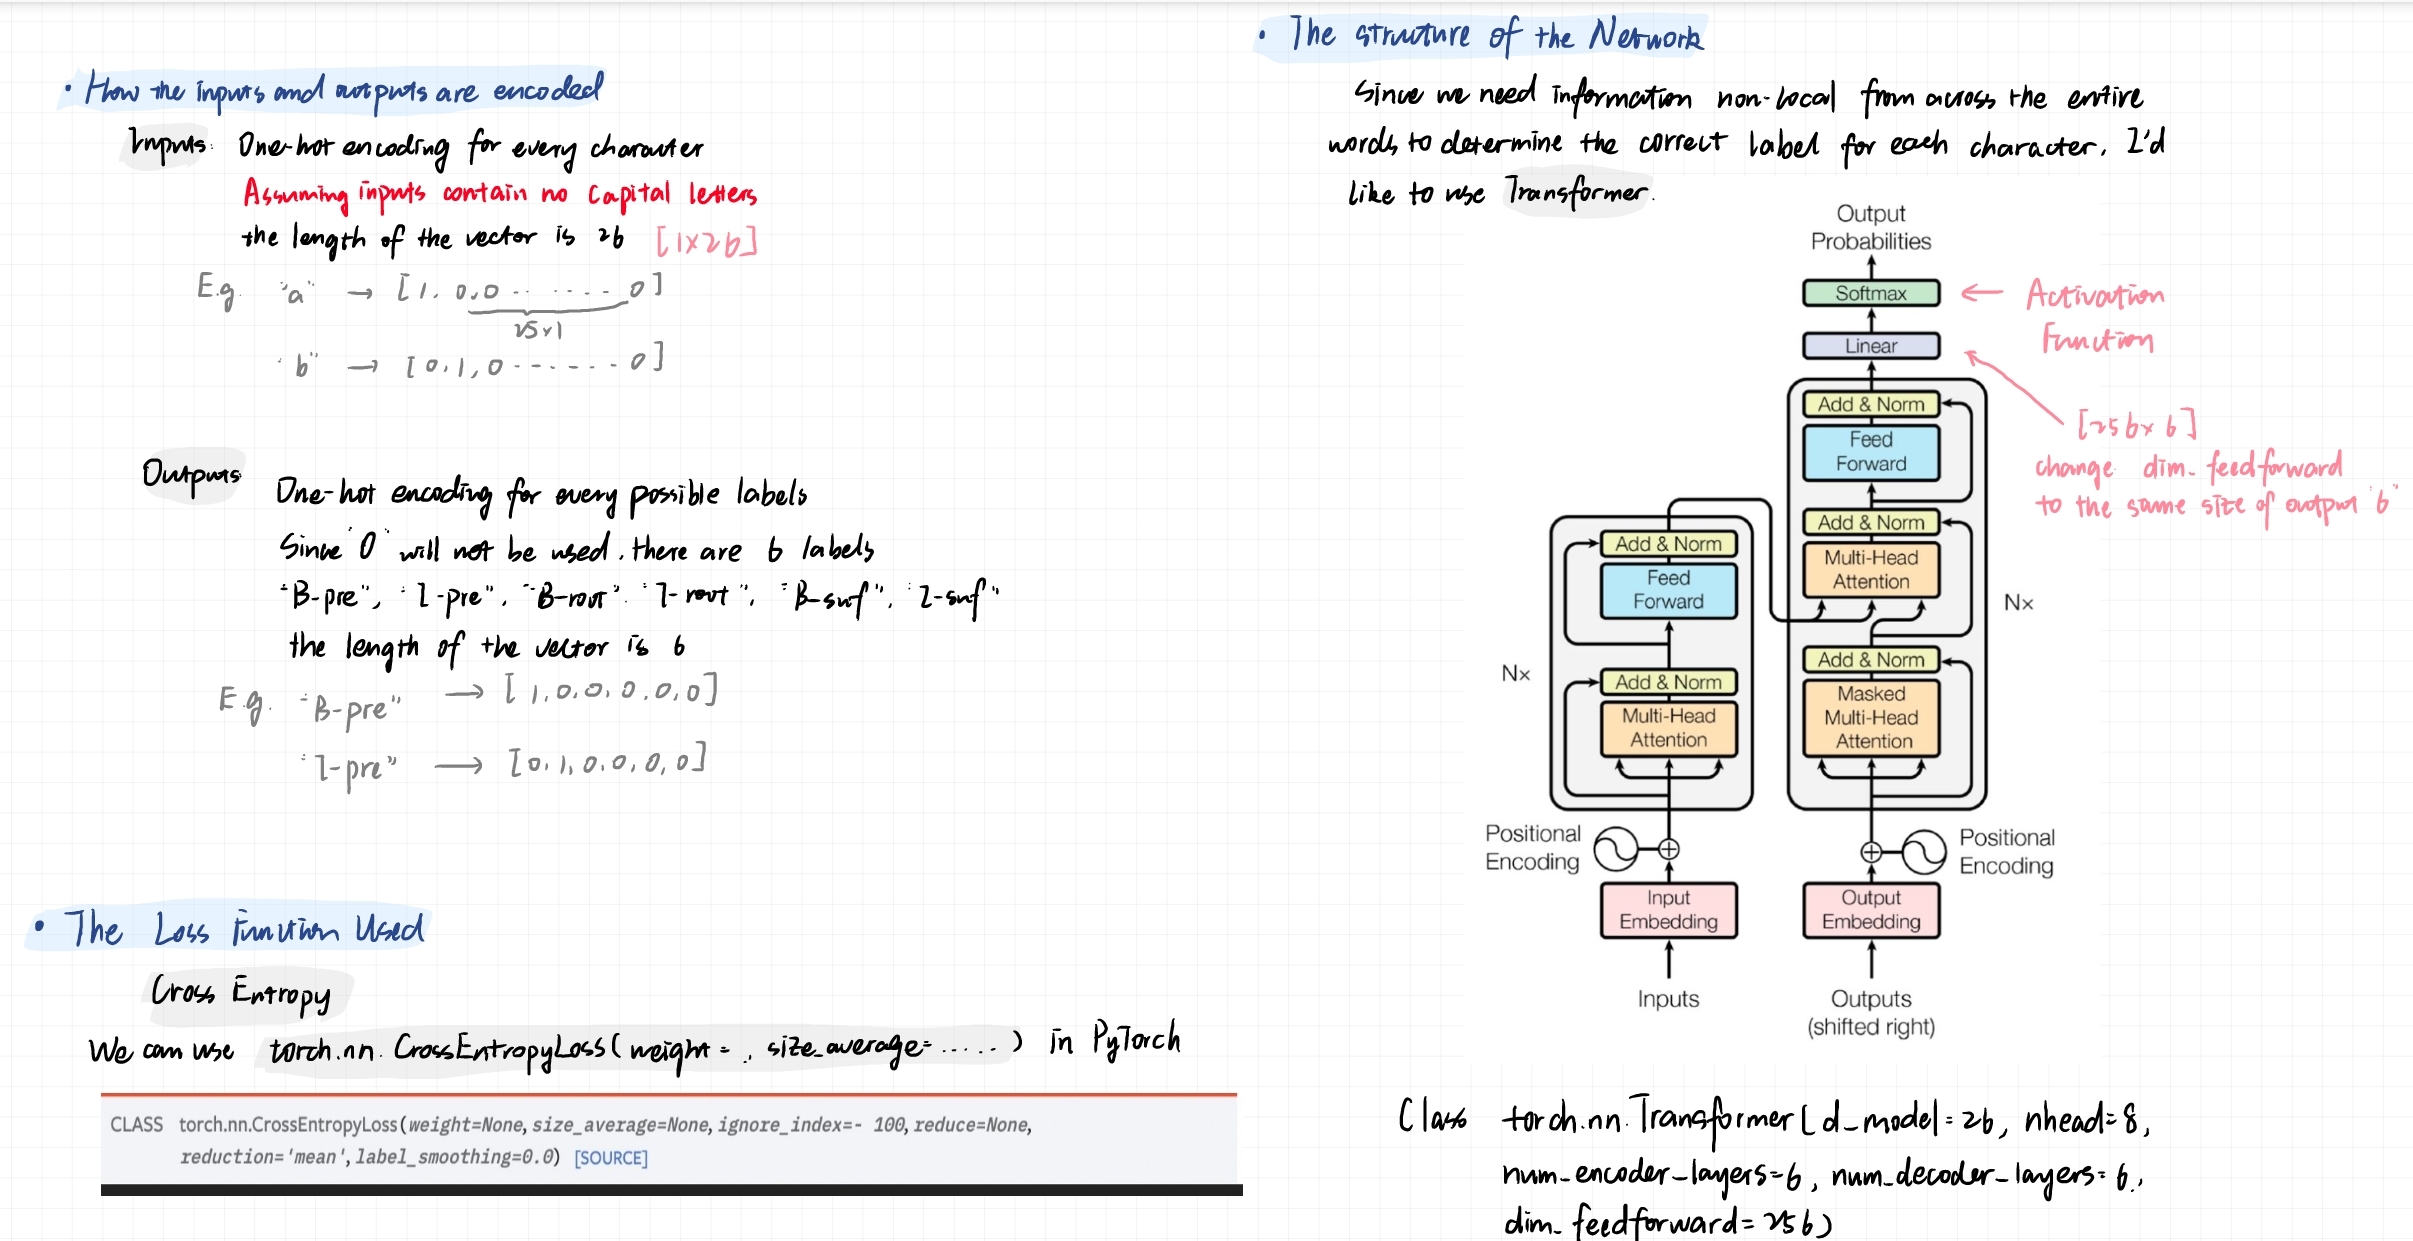 • How the inputs and outputs are encoded
Inputs: One-hot encoding for every character
Assuming inputs contain no capital letters
the length of the vector is 26 [1×26]
E.g. "a" → [1, 0,0 ........ 0]
25×1
"b" → [0,1,0 ------- 0]
Outputs One-hot encoding for every possible labels
Since "O" will not be used, there are 6 labels
"B-pre", "I-pre", "B-root", "I-root", "B-suf", "I-suf"
the length of the vector is 6
E.g. "B-pre" → [1,0,0,0,0,0]
"I-pre" → [0,1,0,0,0,0]
• The Loss Function Used
Cross Entropy
We can use torch.nn.CrossEntropyLoss(weight= , size_average= .....) in PyTorch
CLASS torch.nn.CrossEntropyLoss(weight=None, size_average=None, ignore_index=- 100, reduce=None,
reduction='mean', label_smoothing=0.0) [SOURCE]
• The structure of the Network
Since we need information non-local from across the entire
words to determine the correct label for each character, I'd
like to use Transformer.
Output
Probabilities
Softmax ← Activation
Function
Linear
[256×6]
change dim_feedforward
to the same size of output "6"
Add & Norm
Feed
Forward
Add & Norm
Multi-Head
Attention
Nx
Add & Norm
Masked
Multi-Head
Attention
Add & Norm
Feed
Forward
Nx
Add & Norm
Multi-Head
Attention
Positional
Encoding
Positional
Encoding
Input
Embedding
Output
Embedding
Inputs
Outputs
(shifted right)
Class torch.nn.Transformer(d_model=26, nhead=8,
num_encoder_layers=6, num_decoder_layers=6,
dim_feedforward=256)